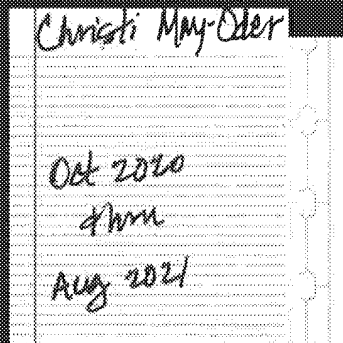 Christi May-Oder
Oct 2020
thru
Aug 2021